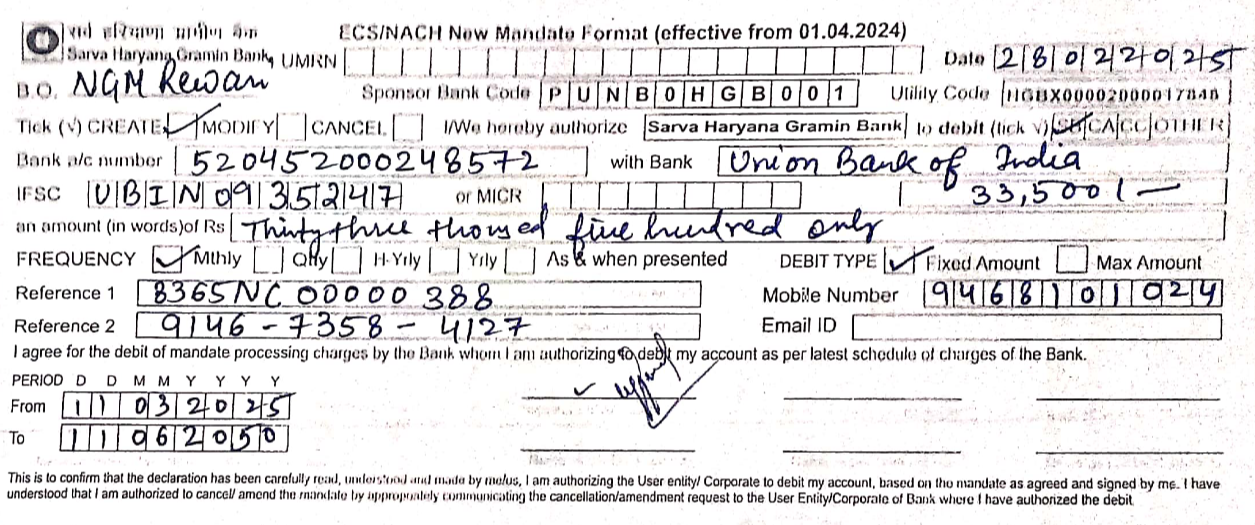 सर्व हरियाणा ग्रामीण बैंक
ECS/NACH New Mandate Format (effective from 01.04.2024)
Sarva Haryana Gramin Bank UMRN
Date 28022025
B.O. NGM Rewari
Sponsor Bank Code PUNB0HGB001 Utility Code HGBX00002000017848
Tick (√) CREATE ✓ MODIFY CANCEL I/We hereby authorize Sarva Haryana Gramin Bank to debit (tick √) SB CA CC OTHER
Bank a/c number 520452000248572 with Bank Union Bank of India
IFSC UBIN0935247 or MICR 33,500/-
an amount (in words)of Rs Thirty three thoused five hundred only
FREQUENCY ✓ Mthly Qtly H-Yrly Yrly As & when presented DEBIT TYPE ✓ Fixed Amount Max Amount
Reference 1 8365NC00000388 Mobile Number 9468101024
Reference 2 9146-7358-4127 Email ID
I agree for the debit of mandate processing charges by the Bank whom I am authorizing to debit my account as per latest schedule of charges of the Bank.
PERIOD D D M M Y Y Y Y
From 11032025
To 11062050
This is to confirm that the declaration has been carefully read, understood and made by me/us, I am authorizing the User entity/ Corporate to debit my account, based on the mandate as agreed and signed by me. I have
understood that I am authorized to cancel/ amend the mandate by appropriately communicating the cancellation/amendment request to the User Entity/Corporate of Bank where I have authorized the debit